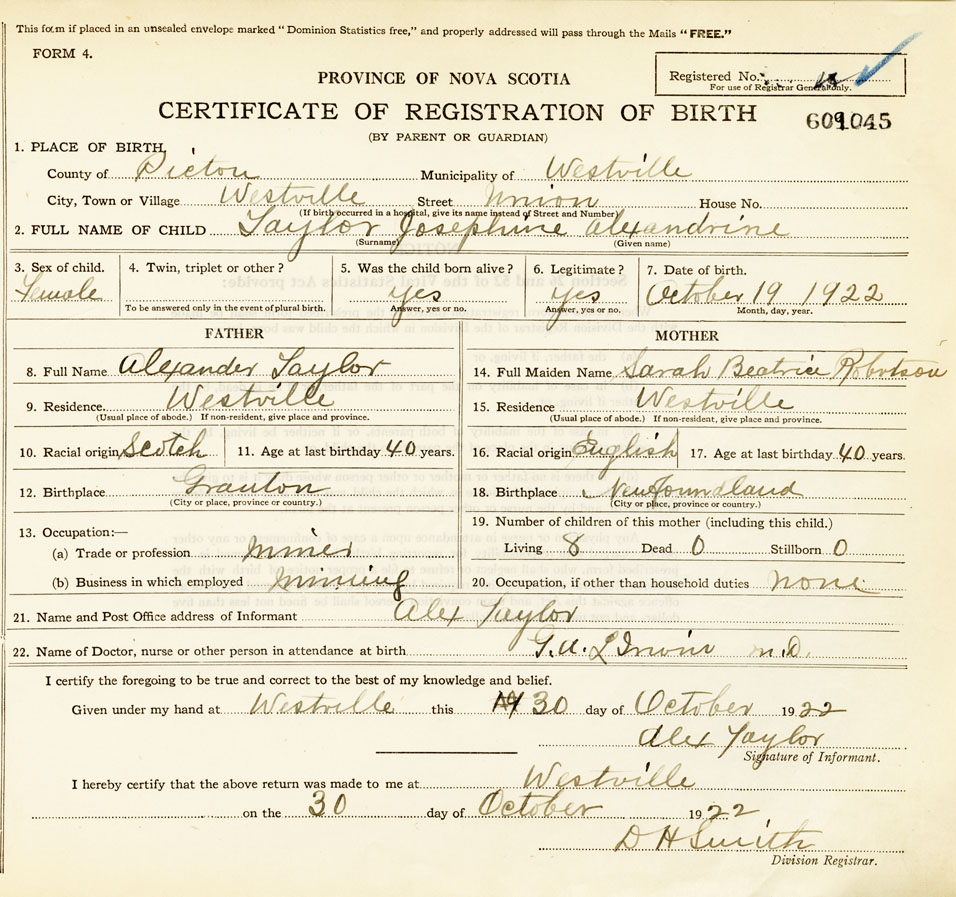 This form if placed in an unsealed envelope marked "Dominion Statistics free," and properly addressed will pass through the Mails "FREE."
FORM 4.
Registered No.
For use of Registrar General only.
PROVINCE OF NOVA SCOTIA
CERTIFICATE OF REGISTRATION OF BIRTH
(BY PARENT OR GUARDIAN)
1. PLACE OF BIRTH,
County of Pictou Municipality of Westville
City, Town or Village Westville Street Union House No.
(If birth occurred in a hospital, give its name instead of Street and Number)
2. FULL NAME OF CHILD Taylor Josephine Alexandrine
(Surname) (Given name)
3. Sex of child. Female
4. Twin, triplet or other?
To be answered only in the event of plural birth.
5. Was the child born alive? Yes
Answer, yes or no.
6. Legitimate? Yes
Answer, yes or no.
7. Date of birth. October 19 1922
Month, day, year.
FATHER
8. Full Name Alexander Taylor
9. Residence Westville
(Usual place of abode.) If non-resident, give place and province.
10. Racial origin Scotch 11. Age at last birthday 40 years.
12. Birthplace Granton
(City or place, province or country.)
13. Occupation:—
(a) Trade or profession Miner
(b) Business in which employed Mining
MOTHER
14. Full Maiden Name Sarah Beatrice Robertson
15. Residence Westville
(Usual place of abode.) If non-resident, give place and province.
16. Racial origin English 17. Age at last birthday 40 years.
18. Birthplace Newfoundland
(City or place, province or country.)
19. Number of children of this mother (including this child.)
Living 8 Dead 0 Stillborn 0
20. Occupation, if other than household duties none
21. Name and Post Office address of Informant Alex Taylor
22. Name of Doctor, nurse or other person in attendance at birth M.D.
I certify the foregoing to be true and correct to the best of my knowledge and belief.
Given under my hand at Westville this 30 day of October 1922
Alex Taylor
Signature of Informant.
I hereby certify that the above return was made to me at Westville
on the 30 day of October 1922
D H Smith
Division Registrar.